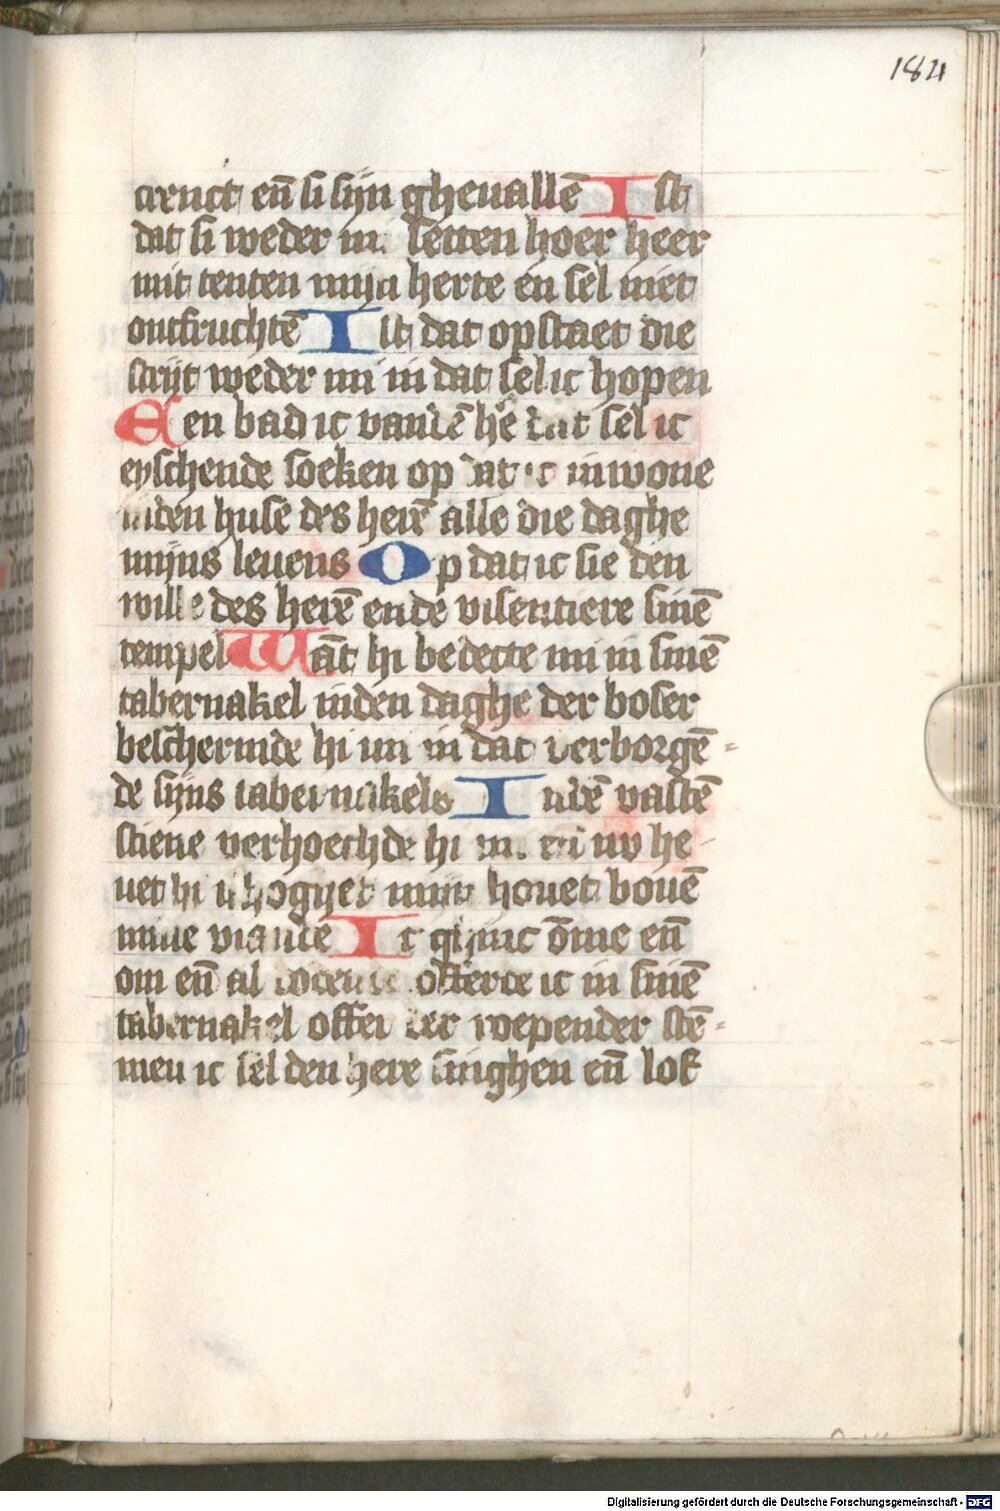 184
crenct en̄ si sijn gheuallē Ist
dat si weder mi setten hoer heer
mit tenten mijn herte en sel niet
ontfruchtē Ist dat opstaet die
strijt weder mi in dat sel ic hopen
Een bad ic vandē hē dat sel ic
eyschende soeken op dat ic inwone
inden huse des herē alle die daghe
mijns leuens Op dat ic sie den
wille des herē ende visentiere sinē
tempel Wāt hi bedecte mi in sinē
tabernakel inden daghe der boser
beschermde hi mi in dat verborgē-
de sijns tabernakels Indē vastē
stiene verhoechde hi mi en̄ nv he
uet hi ghet mijn houet bouē
mine viande Ic ghinc ōme en̄
om en̄ al offerte ic in sinē
tabernakel offer der roepender stē-
men ic sel den here singhen en̄ lof
Digitalisierung gefördert durch die Deutsche Forschungsgemeinschaft - DFG